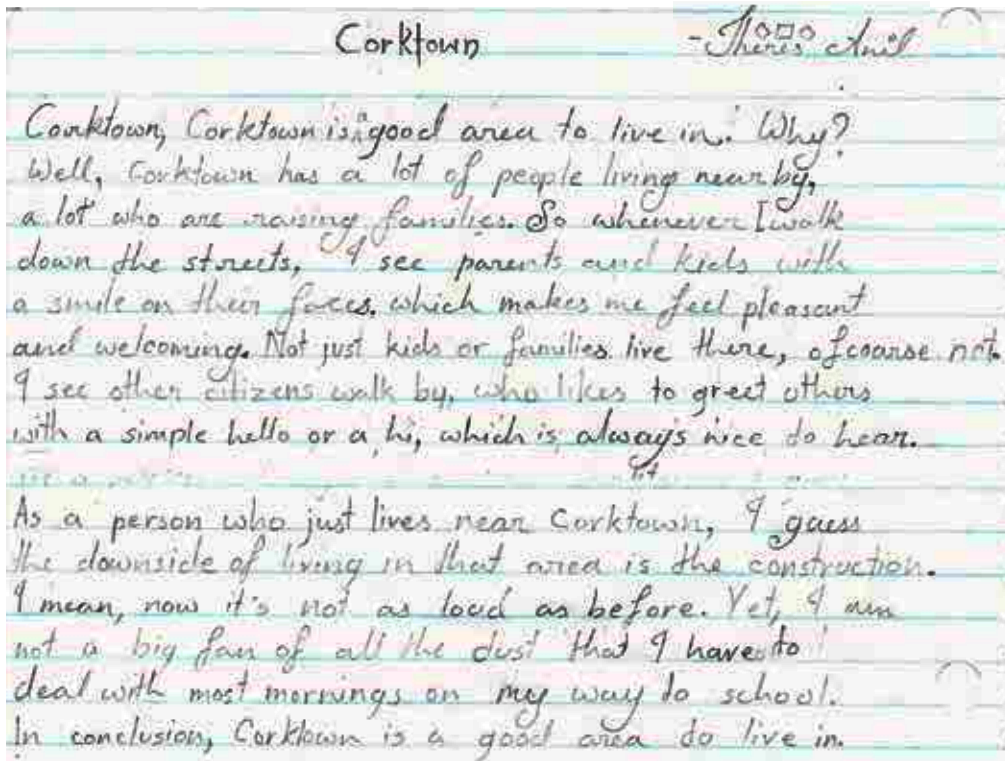 Corktown - Theres Anil
Couktown, Corktown is a good area to live in. Why?
Well, Corktown has a lot of people living near by,
a lot who are raising families. So whenever I walk
down the streets, I see parents and kids with
a smile on their faces. which makes me feel pleasant
and welcoming. Not just kids or families live there, ofcoarse not.
I see other citizens walk by, who likes to greet others
with a simple hello or a hi, which is always nice to hear.
As a person who just lives near Corktown, I guess
the downside of living in that area is the construction.
I mean, now it's not as loud as before. Yet, I am
not a big fan of all the dust that I have to
deal with most mornings on my way to school.
In conclusion, Corktown is a good area to live in.